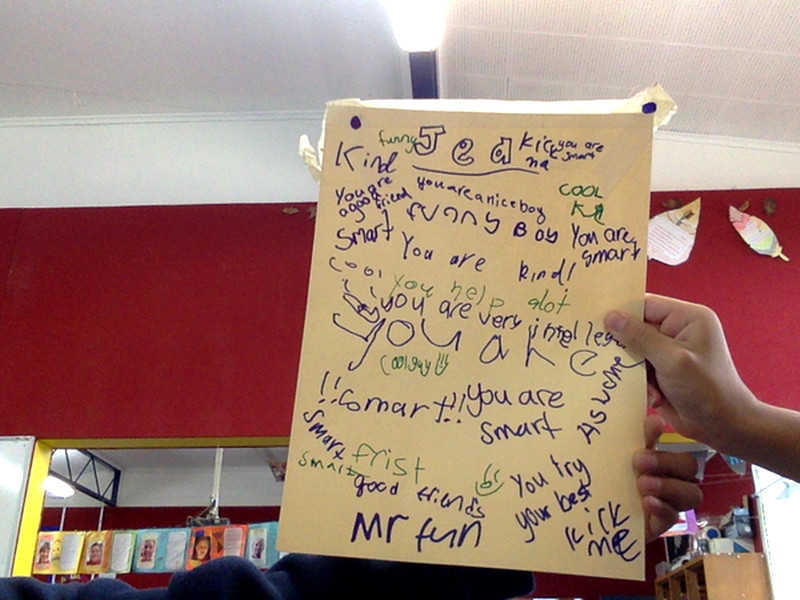 funny Jed kick you are
Kind me smart
you are you are a nice boy cool
a good friend funny Boy
smart You are smart
You are kind!
cool you help alot
you are very
you are
cool guy
!!smart!! you are Aswome
smart smart
smart frist
good friends You try
your best
Mr fun kick
me